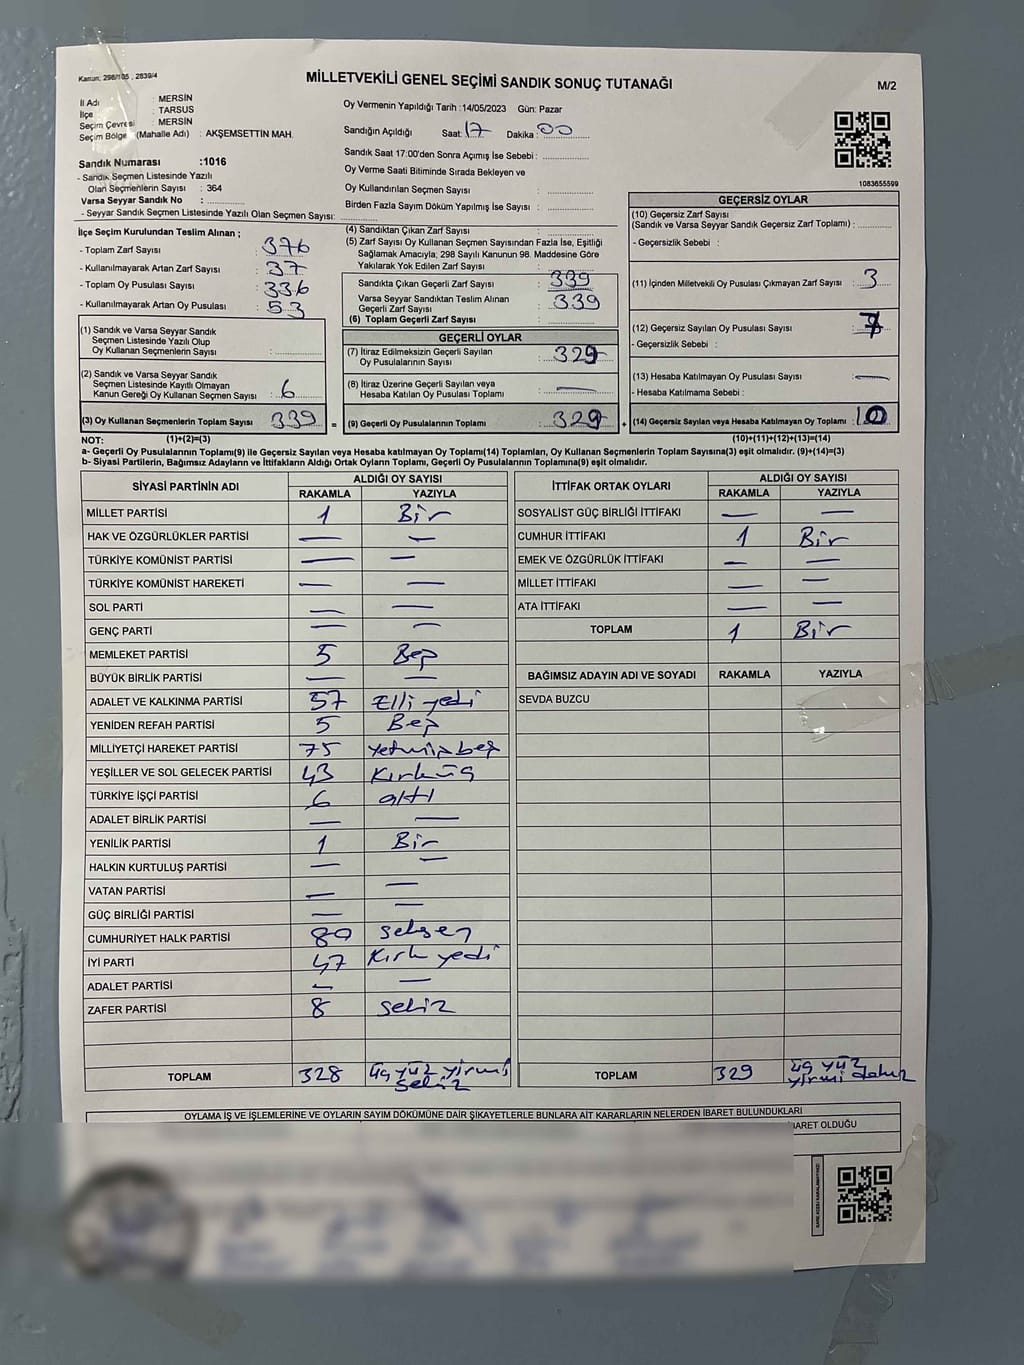 Kanun; 298/105 , 2839/4
MİLLETVEKİLİ GENEL SEÇİMİ SANDIK SONUÇ TUTANAĞI
M/2
İl Adı : MERSİN
İlçe : TARSUS
Seçim Çevresi : MERSİN
Seçim Bölge (Mahalle Adı) : AKŞEMSETTİN MAH.
Sandık Numarası :1016
- Sandık Seçmen Listesinde Yazılı
Olan Seçmenlerin Sayısı : 364
Varsa Seyyar Sandık No :
- Seyyar Sandık Seçmen Listesinde Yazılı Olan Seçmen Sayısı:
Oy Vermenin Yapıldığı Tarih :14/05/2023 Gün: Pazar
Sandığın Açıldığı Saat: 17 Dakika : 00
Sandık Saat 17:00'den Sonra Açımış İse Sebebi :
Oy Verme Saati Bitiminde Sırada Bekleyen ve
Oy Kullandırılan Seçmen Sayısı :
Birden Fazla Sayım Döküm Yapılmış İse Sayısı :
1083655599
İlçe Seçim Kurulundan Teslim Alınan ;
- Toplam Zarf Sayısı : 376
- Kullanılmayarak Artan Zarf Sayısı : 37
- Toplam Oy Pusulası Sayısı : 336
- Kullanılmayarak Artan Oy Pusulası : 53
(1) Sandık ve Varsa Seyyar Sandık
Seçmen Listesinde Yazılı Olup
Oy Kullanan Seçmenlerin Sayısı :
(2) Sandık ve Varsa Seyyar Sandık
Seçmen Listesinde Kayıtlı Olmayan
Kanun Gereği Oy Kullanan Seçmen Sayısı : 6
(3) Oy Kullanan Seçmenlerin Toplam Sayısı : 339 =
(4) Sandıktan Çıkan Zarf Sayısı :
(5) Zarf Sayısı Oy Kullanan Seçmen Sayısından Fazla İse, Eşitliği
Sağlamak Amacıyla; 298 Sayılı Kanunun 98. Maddesine Göre
Yakılarak Yok Edilen Zarf Sayısı :
Sandıkta Çıkan Geçerli Zarf Sayısı : 339
Varsa Seyyar Sandıktan Teslim Alınan
Geçerli Zarf Sayısı : 339
(6) Toplam Geçerli Zarf Sayısı :
GEÇERLİ OYLAR
(7) İtiraz Edilmeksizin Geçerli Sayılan
Oy Pusulalarının Sayısı : 329
(8) İtiraz Üzerine Geçerli Sayılan veya
Hesaba Katılan Oy Pusulası Toplamı : —
(9) Geçerli Oy Pusulalarının Toplamı : 329 +
GEÇERSİZ OYLAR
(10) Geçersiz Zarf Sayısı
(Sandık ve Varsa Seyyar Sandık Geçersiz Zarf Toplamı) :
- Geçersizlik Sebebi :
(11) İçinden Milletvekili Oy Pusulası Çıkmayan Zarf Sayısı : 3
(12) Geçersiz Sayılan Oy Pusulası Sayısı : 7
- Geçersizlik Sebebi :
(13) Hesaba Katılmayan Oy Pusulası Sayısı : —
- Hesaba Katılmama Sebebi :
(14) Geçersiz Sayılan veya Hesaba Katılmayan Oy Toplamı : 10
NOT: (1)+(2)=(3) (10)+(11)+(12)+(13)=(14)
a- Geçerli Oy Pusulasının Toplamı(9) ile Geçersiz Sayılan veya Hesaba Katılmayan Oy Toplamı(14) Toplamları, Oy Kullanan Seçmenlerin Toplam Sayısına(3) eşit olmalıdır. (9)+(14)=(3)
b- Siyasi Partilerin, Bağımsız Adayların ve İttifakların Aldığı Ortak Oyların Toplamı, Geçerli Oy Pusulalarının Toplamına(9) eşit olmalıdır.
SİYASİ PARTİNİN ADI ALDIĞI OY SAYISI
RAKAMLA YAZIYLA
MİLLET PARTİSİ 1 Bir
HAK VE ÖZGÜRLÜKLER PARTİSİ — —
TÜRKİYE KOMÜNİST PARTİSİ — —
TÜRKİYE KOMÜNİST HAREKETİ — —
SOL PARTİ — —
GENÇ PARTİ — —
MEMLEKET PARTİSİ 5 Beş
BÜYÜK BİRLİK PARTİSİ — —
ADALET VE KALKINMA PARTİSİ 57 Elli yedi
YENİDEN REFAH PARTİSİ 5 Beş
MİLLİYETÇİ HAREKET PARTİSİ 75 Yetmiş beş
YEŞİLLER VE SOL GELECEK PARTİSİ 43 Kırk üç
TÜRKİYE İŞÇİ PARTİSİ 6 altı
ADALET BİRLİK PARTİSİ — —
YENİLİK PARTİSİ 1 Bir
HALKIN KURTULUŞ PARTİSİ — —
VATAN PARTİSİ — —
GÜÇ BİRLİĞİ PARTİSİ — —
CUMHURİYET HALK PARTİSİ 80 seksen
İYİ PARTİ 47 Kırk yedi
ADALET PARTİSİ — —
ZAFER PARTİSİ 8 sekiz
TOPLAM 328 üç yüz yirmi sekiz
İTTİFAK ORTAK OYLARI ALDIĞI OY SAYISI
RAKAMLA YAZIYLA
SOSYALİST GÜÇ BİRLİĞİ İTTİFAKI — —
CUMHUR İTTİFAKI 1 Bir
EMEK VE ÖZGÜRLÜK İTTİFAKI — —
MİLLET İTTİFAKI — —
ATA İTTİFAKI — —
TOPLAM 1 Bir
BAĞIMSIZ ADAYIN ADI VE SOYADI RAKAMLA YAZIYLA
SEVDA BUZCU
TOPLAM 329 üç yüz yirmi dokuz
OYLAMA İŞ VE İŞLEMLERİNE VE OYLARIN SAYIM DÖKÜMÜNE DAİR ŞİKAYETLERLE BUNLARA AİT KARARLARIN NELERDEN İBARET BULUNDUKLARI
İBARET OLDUĞU